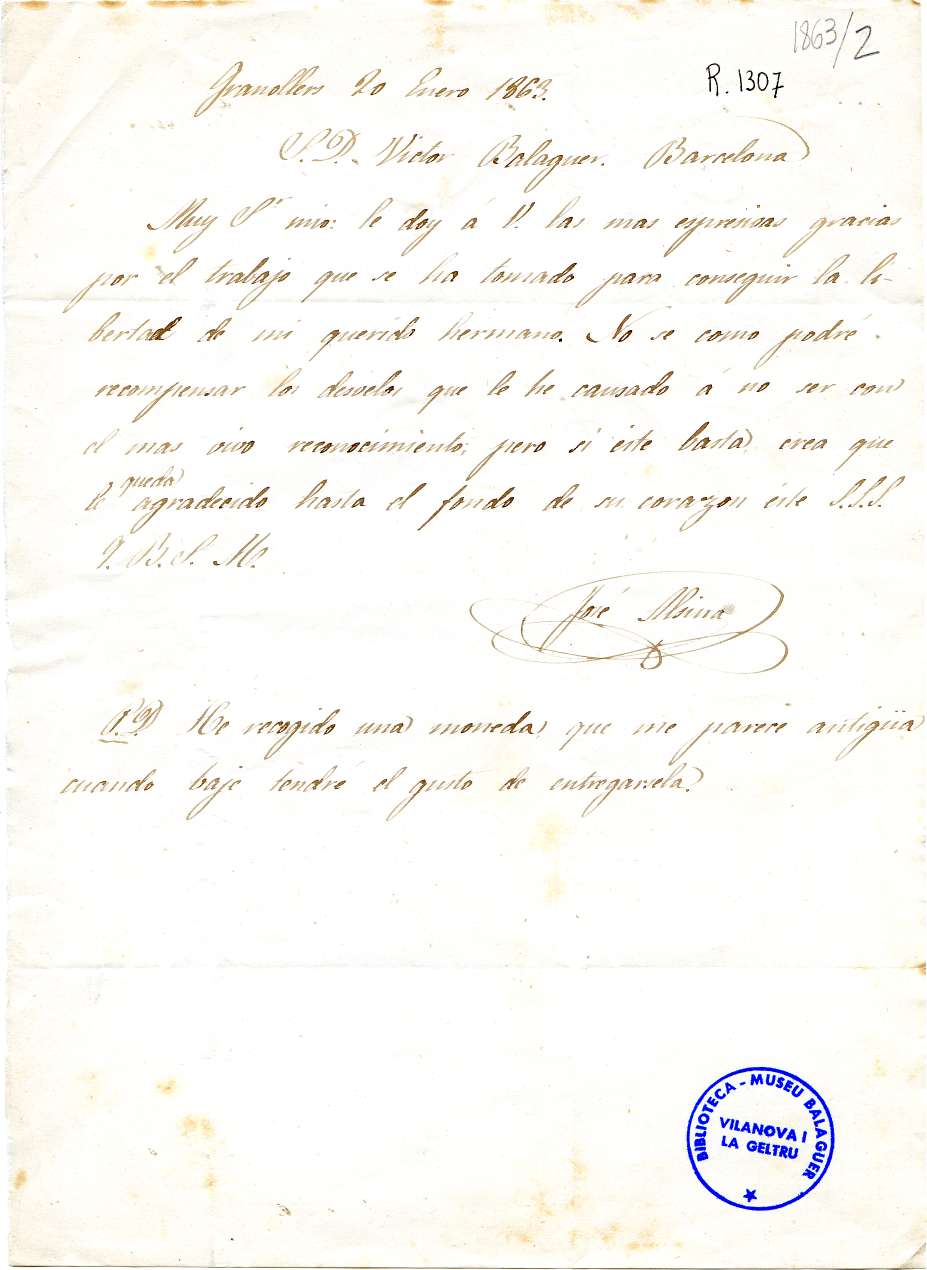 1863/2
R. 1307
Granollers 20 Enero 1863.
S. D. Victor Balaguer. Barcelona
Muy Sr mio: le doy á V. las mas espresivas gracias
por el trabajo que se ha tomado para conseguir la li-
bertad de mi querido hermano. No se como podré
recompensar los desvelos que le he causado á no ser con
el mas vivo reconocimiento; pero si éste basta, crea que
le queda agradecido hasta el fondo de su corazon éste S.S.S.
Q. B. S. M.
José Alsina
P.D. He recogido una moneda, que me parece antigüa
cuando baje tendré el gusto de entregarsela.
BIBLIOTECA - MUSEU BALAGUER
VILANOVA I
LA GELTRU